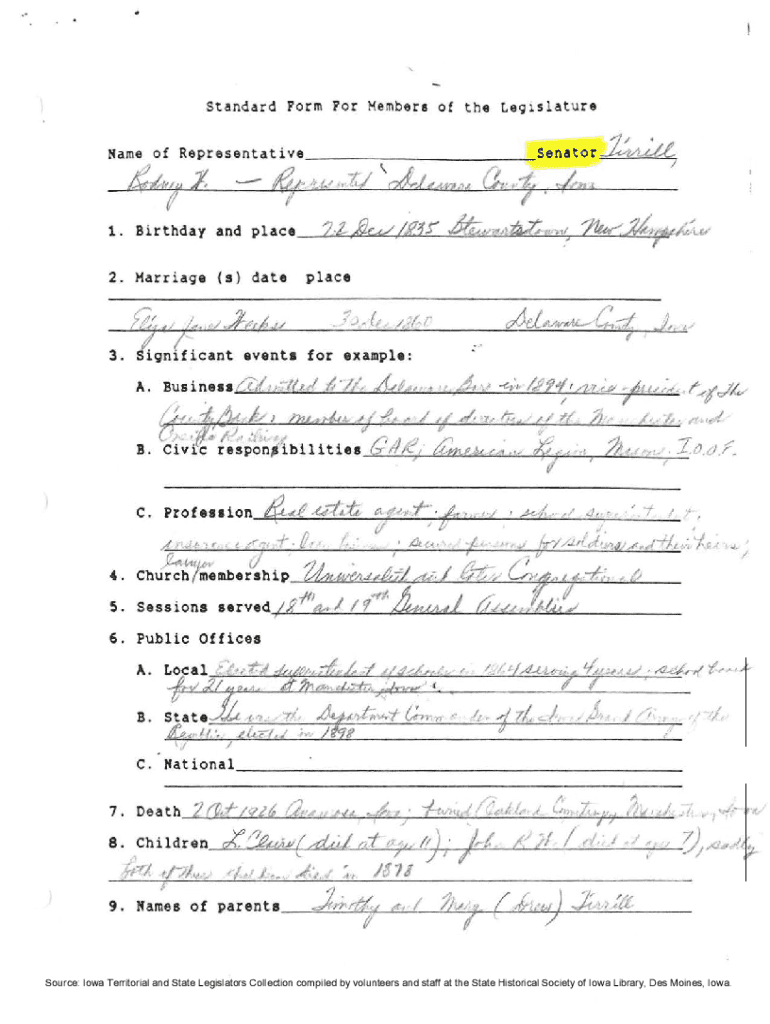 Standard Form For Members of the Legislature
Name of Representative Senator Tirrill,
Rodney W. — Represented Delaware County, Iowa
1. Birthday and place 22 Dec 1835 Stewartstown, New Hampshire
2. Marriage (s) date place
Eliza Jane 1860 Delaware County, Iowa
3. Significant events for example:
A. Business Admitted to the Delaware Bar in 1894; vice-president of the
County Bank; member of board of directors of the Manchester and
Oneida Railway
B. Civic responsibilities GAR; American Legion, Masons, I.O.O.F.
C. Profession Real estate agent; farmer; school superintendent;
insurance agent; loan ; secured pensions for soldiers and their heirs;
lawyer
4. Church membership Universalist and later Congregational
5. Sessions served 18th and 19th General Assemblies
6. Public Offices
A. Local Elected superintendent of schools in 1864 serving 4 years; school board
for 21 years at Manchester, Iowa
B. State He was the Department Commander of the Iowa Grand Army of the
Republic, elected in 1898
C. National
7. Death 2 Oct 1926 Anamosa, Iowa; buried Oakland Cemetery, Manchester, Iowa
8. Children L. Claire (died at age 11); John R. W. (died at age 7), sadly
both of these children died in 1878
9. Names of parents Timothy and Mary (Drew) Tirrill
Source: Iowa Territorial and State Legislators Collection compiled by volunteers and staff at the State Historical Society of Iowa Library, Des Moines, Iowa.